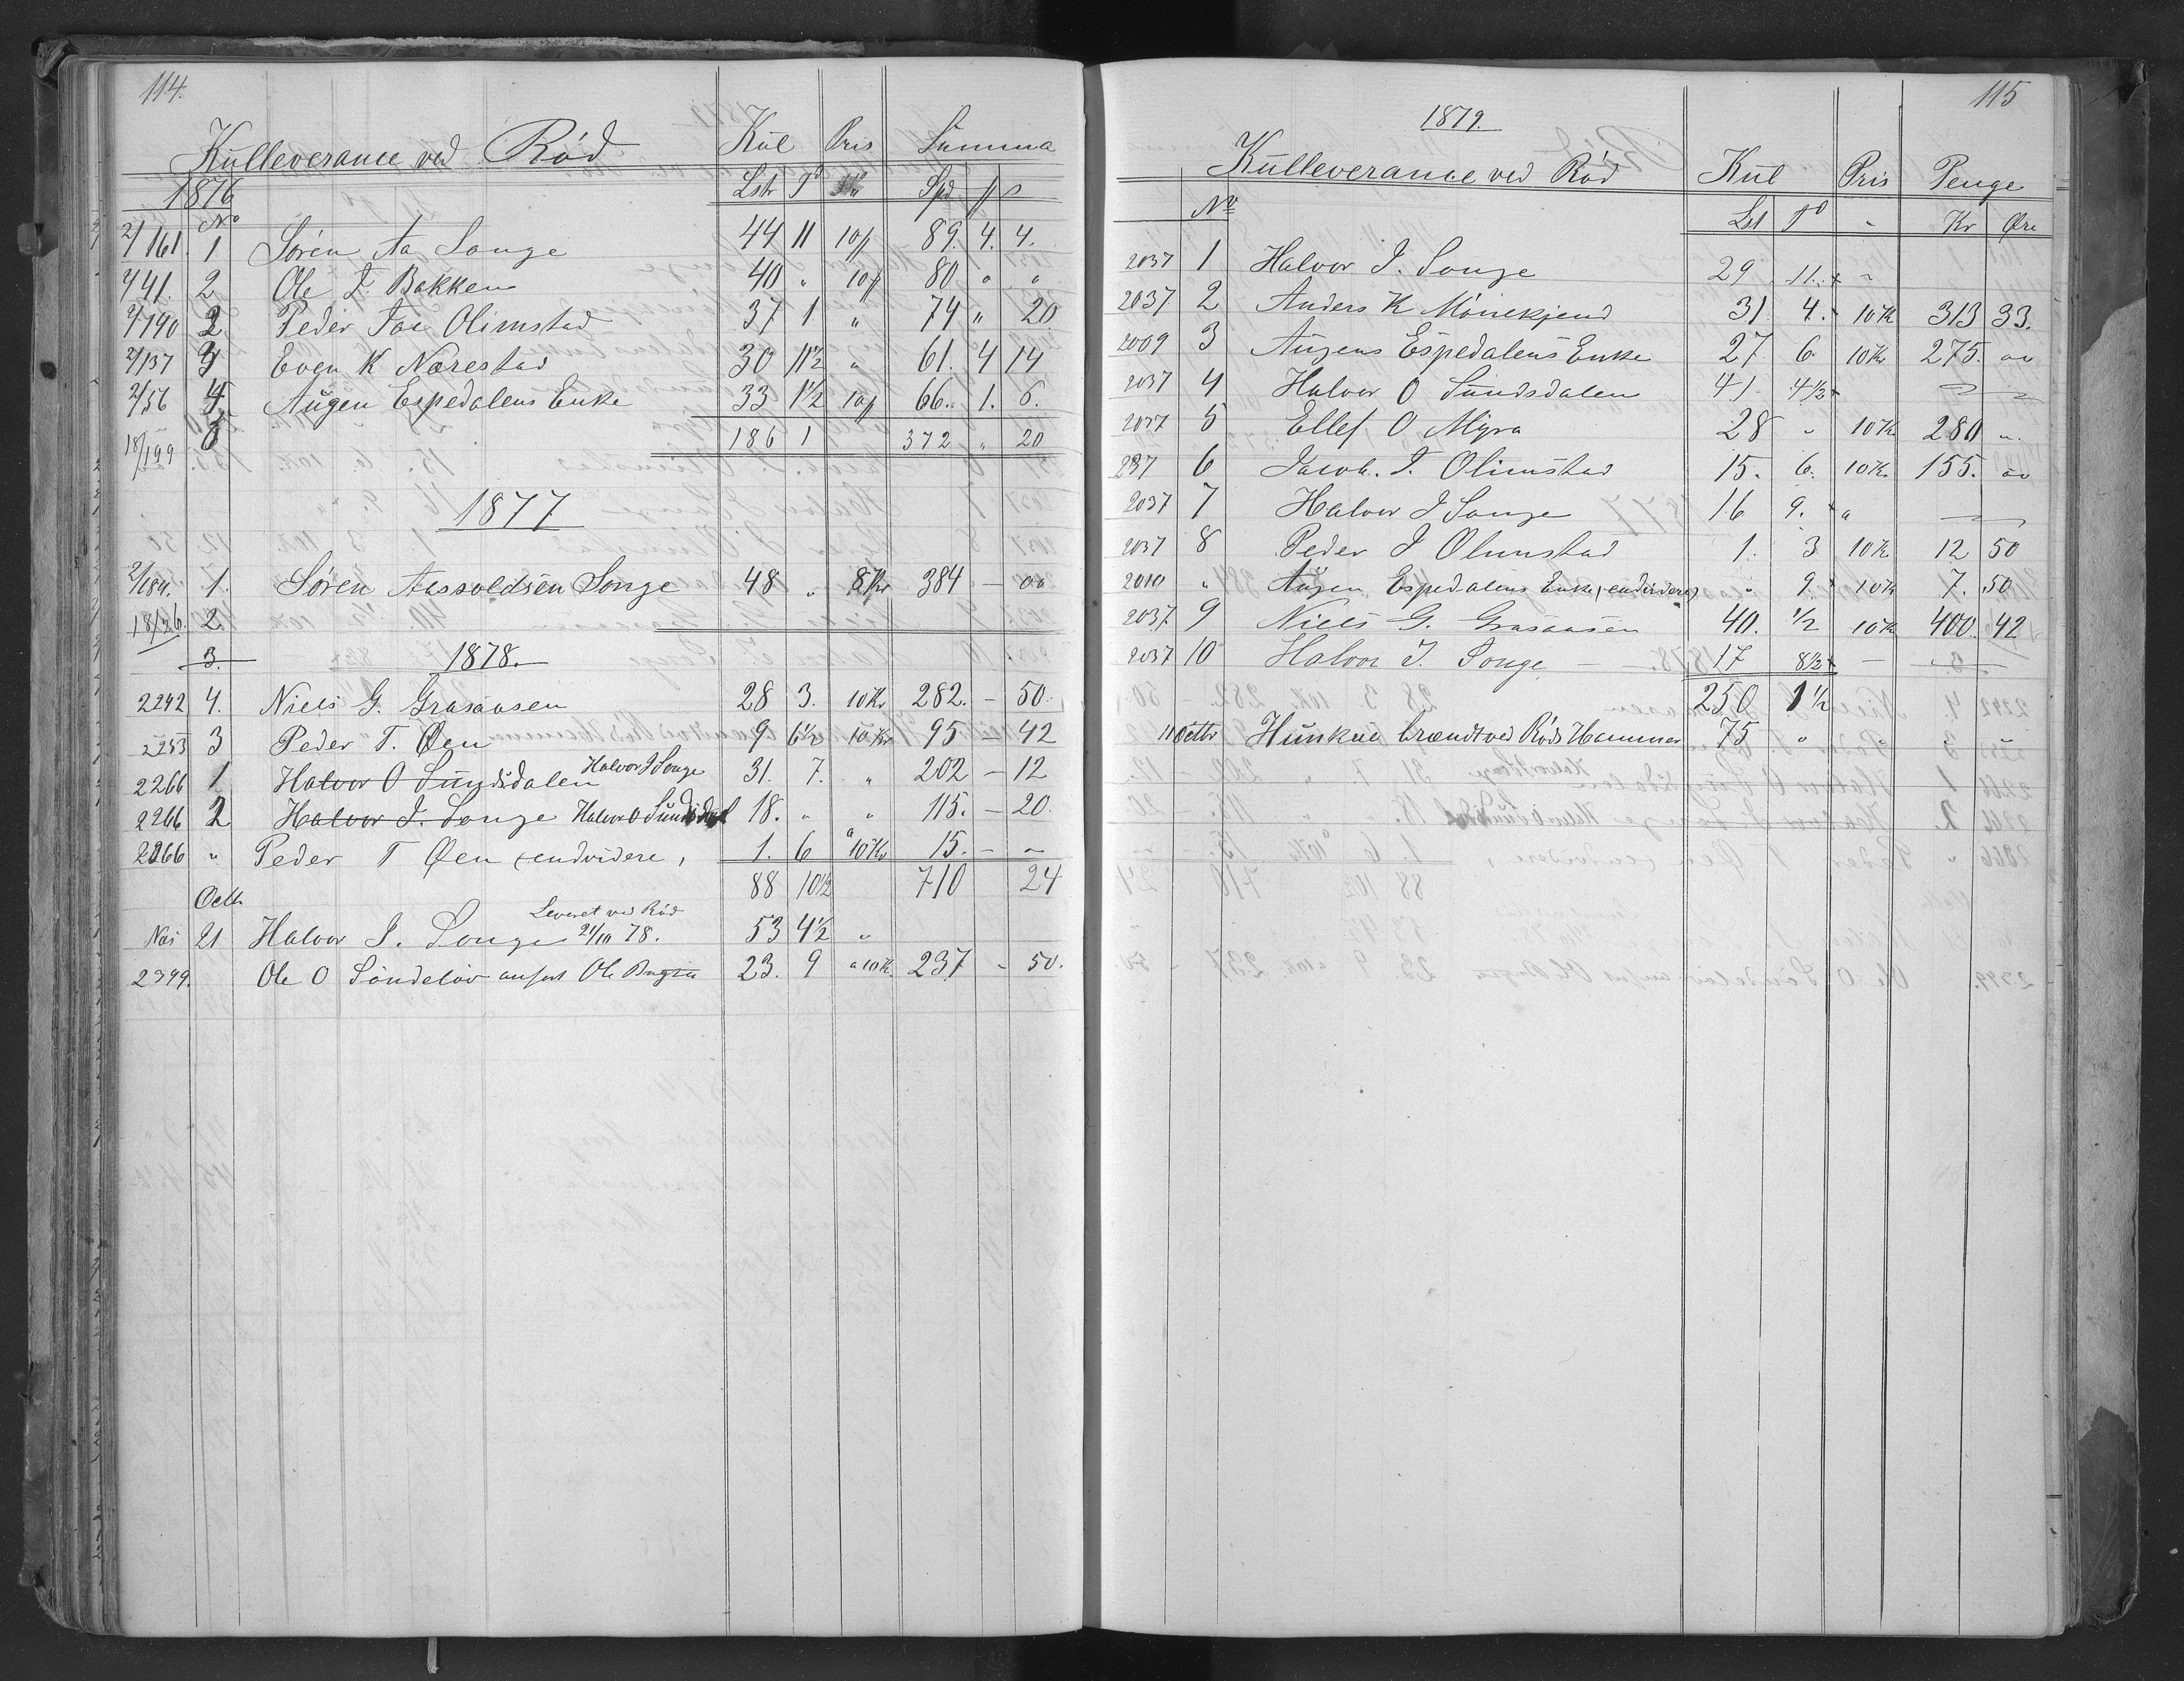 114.
Kulleverance ved Röd Kul Pris Summa
1876 Lstr Td Spd
No
2/161. 1 Sören Aa Songe 44 11 10/ 89. 4. 4.
2/41. 2 Ole T. Bakken 40 " 10/ 80 " "
2/190 2 Peder Jac Olimstad 37 1 " 74 " 20
2/137 3 Even K Nærestad 30 11½ " 61. 4 14
2/56 4 Augen Espedalens Enke 33 1½ 10/ 66. 1. 6.
18/199 186 1 372 " 20
1877
2/184. 1. Sören Aassoldsen Songe 48 " 8 Kr 384 — 00
18/26. 2.
3. 1878.
2242 4. Niels G. Grasaasen 28 3. 10 Kr 282. — 50.
2253 3 Peder T. Øen 9 6½ 10 Kr 95 — 42
2266 1 Halvor O Sundsdalen Halvor J Songe 31. 7. " 202 — 12
2266 2 Halvor J. Songe Halvor O Sundsdal 18. " " 115. — 20.
2266 " Peder T Øen (endvidere, 1. 6 a 10 Kr 15. — "
88 10½ 710 24
Octb Leveret ved Röd
Næs 21 Halvor J. Songe 21/10 78. 53 4½ "
2399. Ole O Söndelöv Ole 23. 9 a 10 K. 237 - 50.
115
1879.
Kulleverance ved Röd Kul Pris Penge
No Lst Td " Kr Øre
2037 1 Halvor J. Songe 29 11. + "
2037 2 Anders K Mörekjend 31. 4. 10 K 313 33.
2009 3 Augens Espedalens Enke 27. 6. 10 Kr 275. 00
2037 4 Halvor O Sundsdalen 41. 4½ +
2037 5 Ellef O Myra 28 " 10 K. 280 "
237 6 Jacob. T. Olimstad 15. 6. 10 K. 155. 00
2037 7 Halvor J Songe 16 9. + a —
2037 8 Peder J Olimstad 1. 3. 10 K. 12 50
2010 " Augen Espedalens Enke (endvidere) " 9. 10 K 7. 50
2037 9 Niels G. Grasaasen 40. ½ 10 K 400. 42
2037 10 Halvor J. Songe — 17 8½ + — —
250 1½
11 Octbr Hunkul brændt ved Röds Hammer 75 " " " "